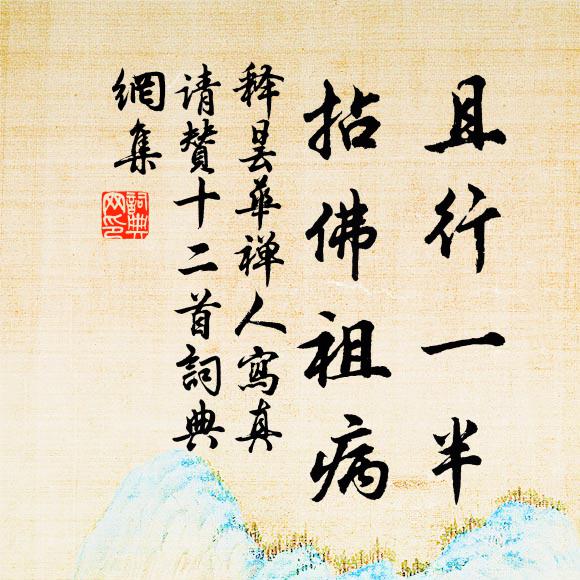 且行一半
拈佛祖病
释昙华禅人寫真
请赞十二首詞典
網集
詞典網印